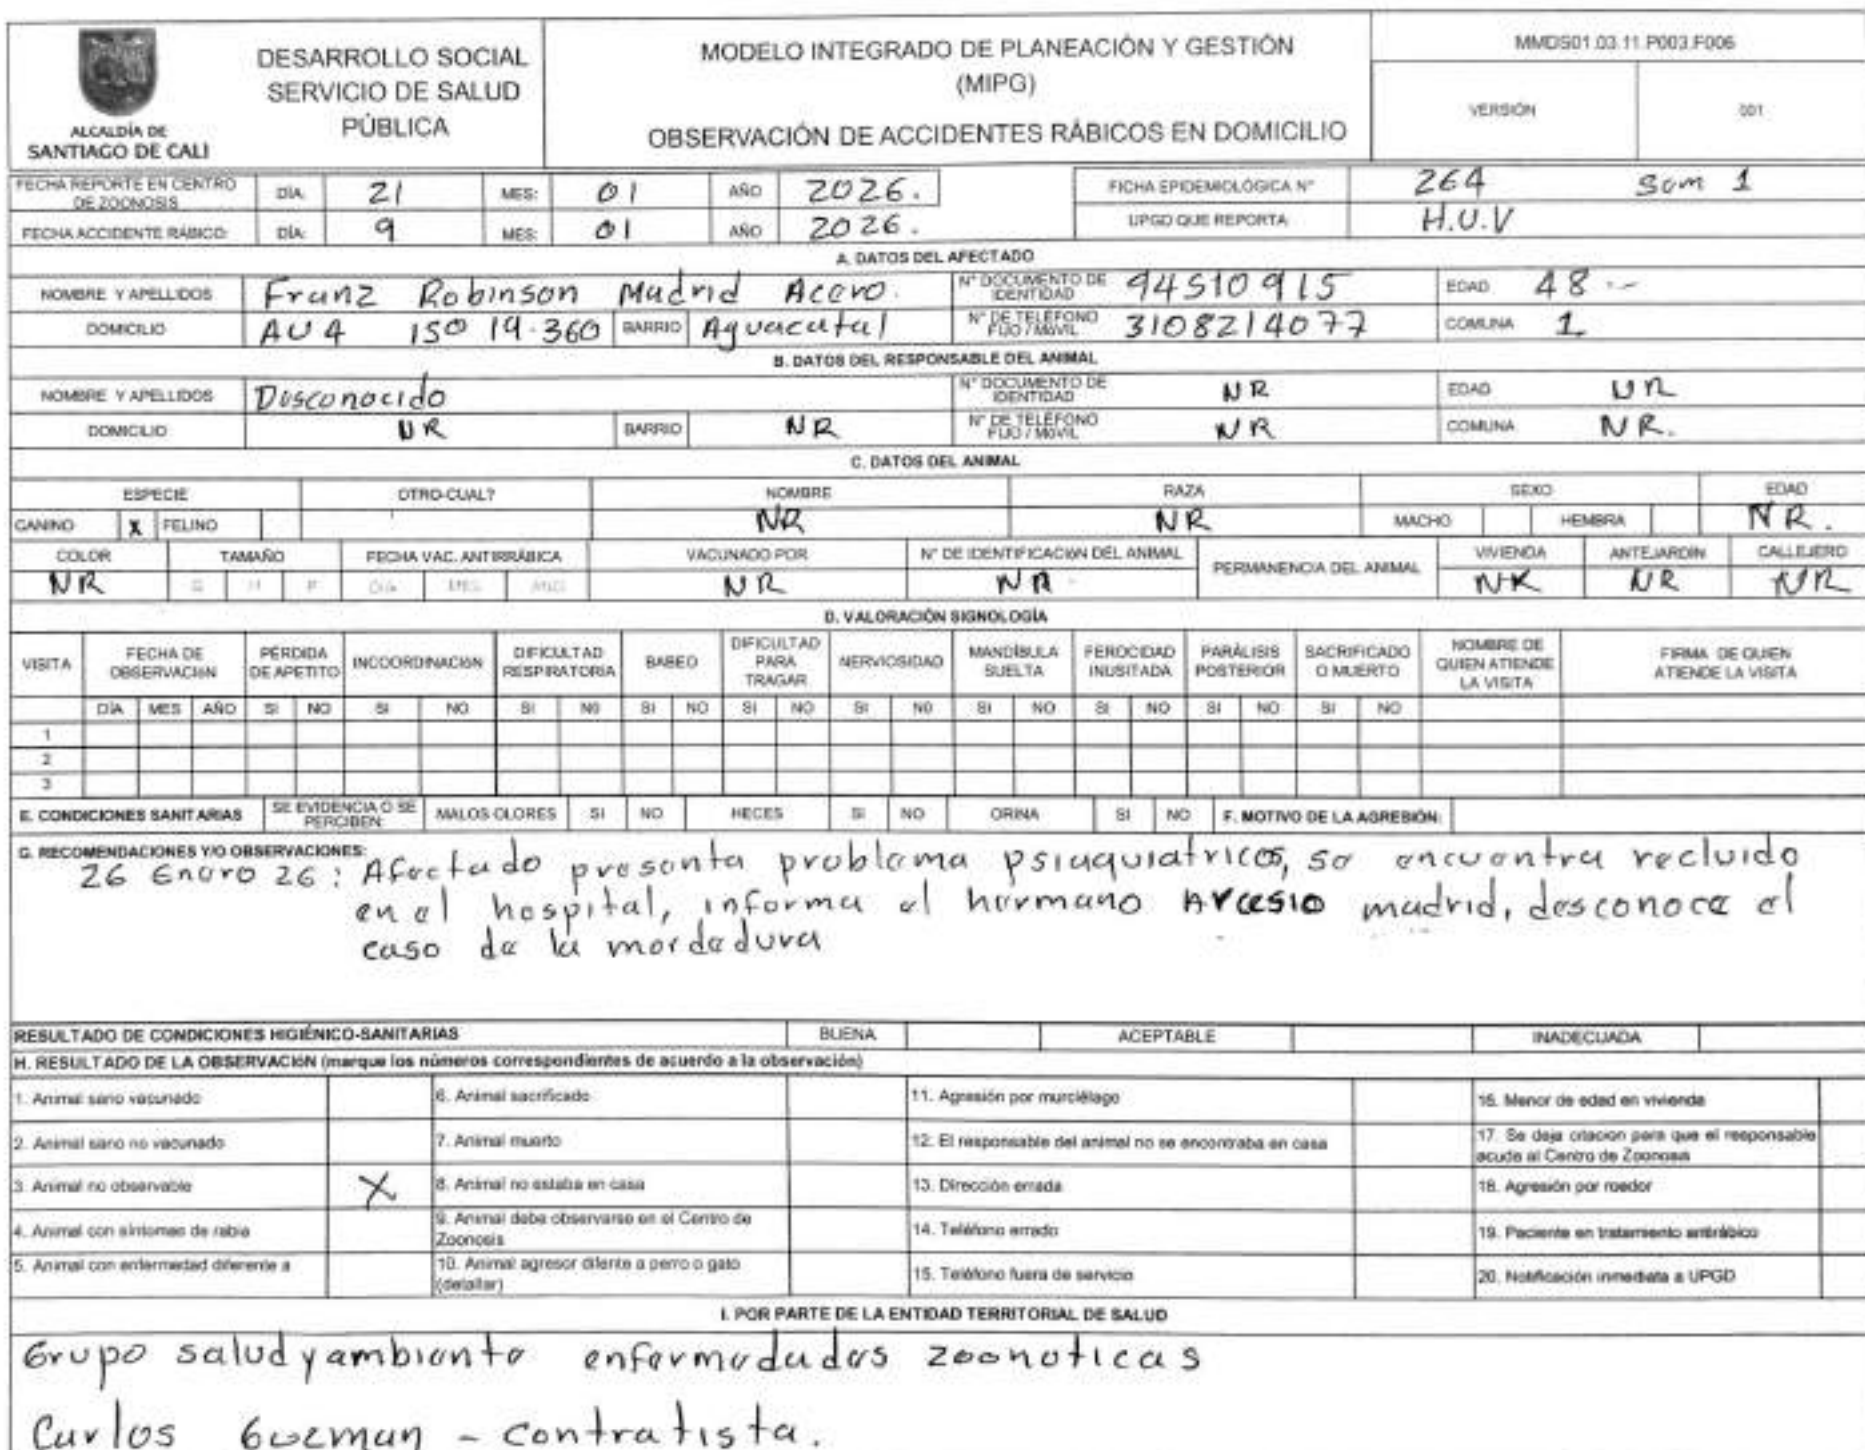 ALCALDÍA DE
SANTIAGO DE CALI
DESARROLLO SOCIAL
SERVICIO DE SALUD
PÚBLICA
MODELO INTEGRADO DE PLANEACIÓN Y GESTIÓN
(MIPG)
OBSERVACIÓN DE ACCIDENTES RÁBICOS EN DOMICILIO
MMDS01.03.11.P003.F006
VERSIÓN 001
FECHA REPORTE EN CENTRO DE ZOONOSIS DÍA: 21 MES: 01 AÑO 2026. FICHA EPIDEMIOLÓGICA N° 264 Sem 1
FECHA ACCIDENTE RÁBICO: DÍA: 9 MES: 01 AÑO 2026. UPGD QUE REPORTA: H.U.V
A. DATOS DEL AFECTADO
NOMBRE Y APELLIDOS Franz Robinson Madrid Acero. N° DOCUMENTO DE IDENTIDAD 94510915 EDAD 48
DOMICILIO AU 4 150 19-360 BARRIO Aguacatal N° DE TELÉFONO FIJO / MÓVIL 3108214077 COMUNA 1
B. DATOS DEL RESPONSABLE DEL ANIMAL
NOMBRE Y APELLIDOS Desconocido N° DOCUMENTO DE IDENTIDAD NR EDAD NR
DOMICILIO NR BARRIO NR N° DE TELÉFONO FIJO / MÓVIL NR COMUNA NR.
C. DATOS DEL ANIMAL
ESPECIE OTRO-CUAL? NOMBRE RAZA SEXO EDAD
CANINO X FELINO NR NR MACHO HEMBRA NR.
COLOR TAMAÑO FECHA VAC. ANTIRRÁBICA VACUNADO POR N° DE IDENTIFICACIÓN DEL ANIMAL PERMANENCIA DEL ANIMAL VIVIENDA ANTEJARDÍN CALLEJERO
NR G M P DÍA MES AÑO NR NR NR NR NR
D. VALORACIÓN SIGNOLOGÍA
VISITA FECHA DE OBSERVACIÓN PÉRDIDA DE APETITO INCOORDINACIÓN DIFICULTAD RESPIRATORIA BABEO DIFICULTAD PARA TRAGAR NERVIOSIDAD MANDÍBULA SUELTA FEROCIDAD INUSITADA PARÁLISIS POSTERIOR SACRIFICADO O MUERTO NOMBRE DE QUIEN ATIENDE LA VISITA FIRMA DE QUIEN ATIENDE LA VISITA
DÍA MES AÑO SI NO SI NO SI NO SI NO SI NO SI NO SI NO SI NO SI NO SI NO
1
2
3
E. CONDICIONES SANITARIAS SE EVIDENCIA O SE PERCIBEN: MALOS OLORES SI NO HECES SI NO ORINA SI NO F. MOTIVO DE LA AGRESIÓN:
G. RECOMENDACIONES Y/O OBSERVACIONES:
26 Enero 26: Afectado presenta problema psiaquiatricos, se encuentra recluido
en el hospital, informa el hermano Arcesio madrid, desconoce el
caso de la mordedura
RESULTADO DE CONDICIONES HIGIÉNICO-SANITARIAS BUENA ACEPTABLE INADECUADA
H. RESULTADO DE LA OBSERVACIÓN (marque los números correspondientes de acuerdo a la observación)
1. Animal sano vacunado 6. Animal sacrificado 11. Agresión por murciélago 16. Menor de edad en vivienda
2. Animal sano no vacunado 7. Animal muerto 12. El responsable del animal no se encontraba en casa 17. Se deja citacion para que el responsable acuda al Centro de Zoonosis
3. Animal no observable X 8. Animal no estaba en casa 13. Dirección errada 18. Agresión por roedor
4. Animal con síntomas de rabia 9. Animal debe observarse en el Centro de Zoonosis 14. Teléfono errado 19. Paciente en tratamiento antirábico
5. Animal con enfermedad diferente a 10. Animal agresor difente a perro o gato (detallar) 15. Teléfono fuera de servicio 20. Notificación inmediata a UPGD
I. POR PARTE DE LA ENTIDAD TERRITORIAL DE SALUD
Grupo salud y ambiente enfermedades zoonoticas
Carlos Guzman - contratista.